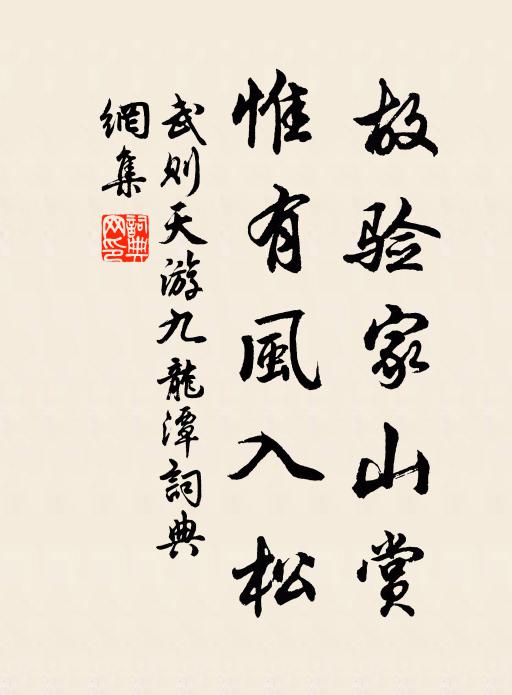 故验家山赏
惟有風入松
武则天游九龍潭詞典
網集
詞典网印